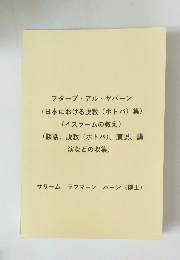 フターブ・アル・ヤバーン
(日本における説教（ホトバ）集)
(イスラームの教え)
(談話、説教（ホトバ）、演説、講
演などの収集)
サリーム ラフマーン ハーン (博士)